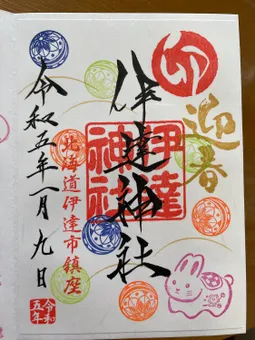 迎春
伊達神社
伊達
神社
北海道伊達市鎮座
令和五年一月九日
令和
五年